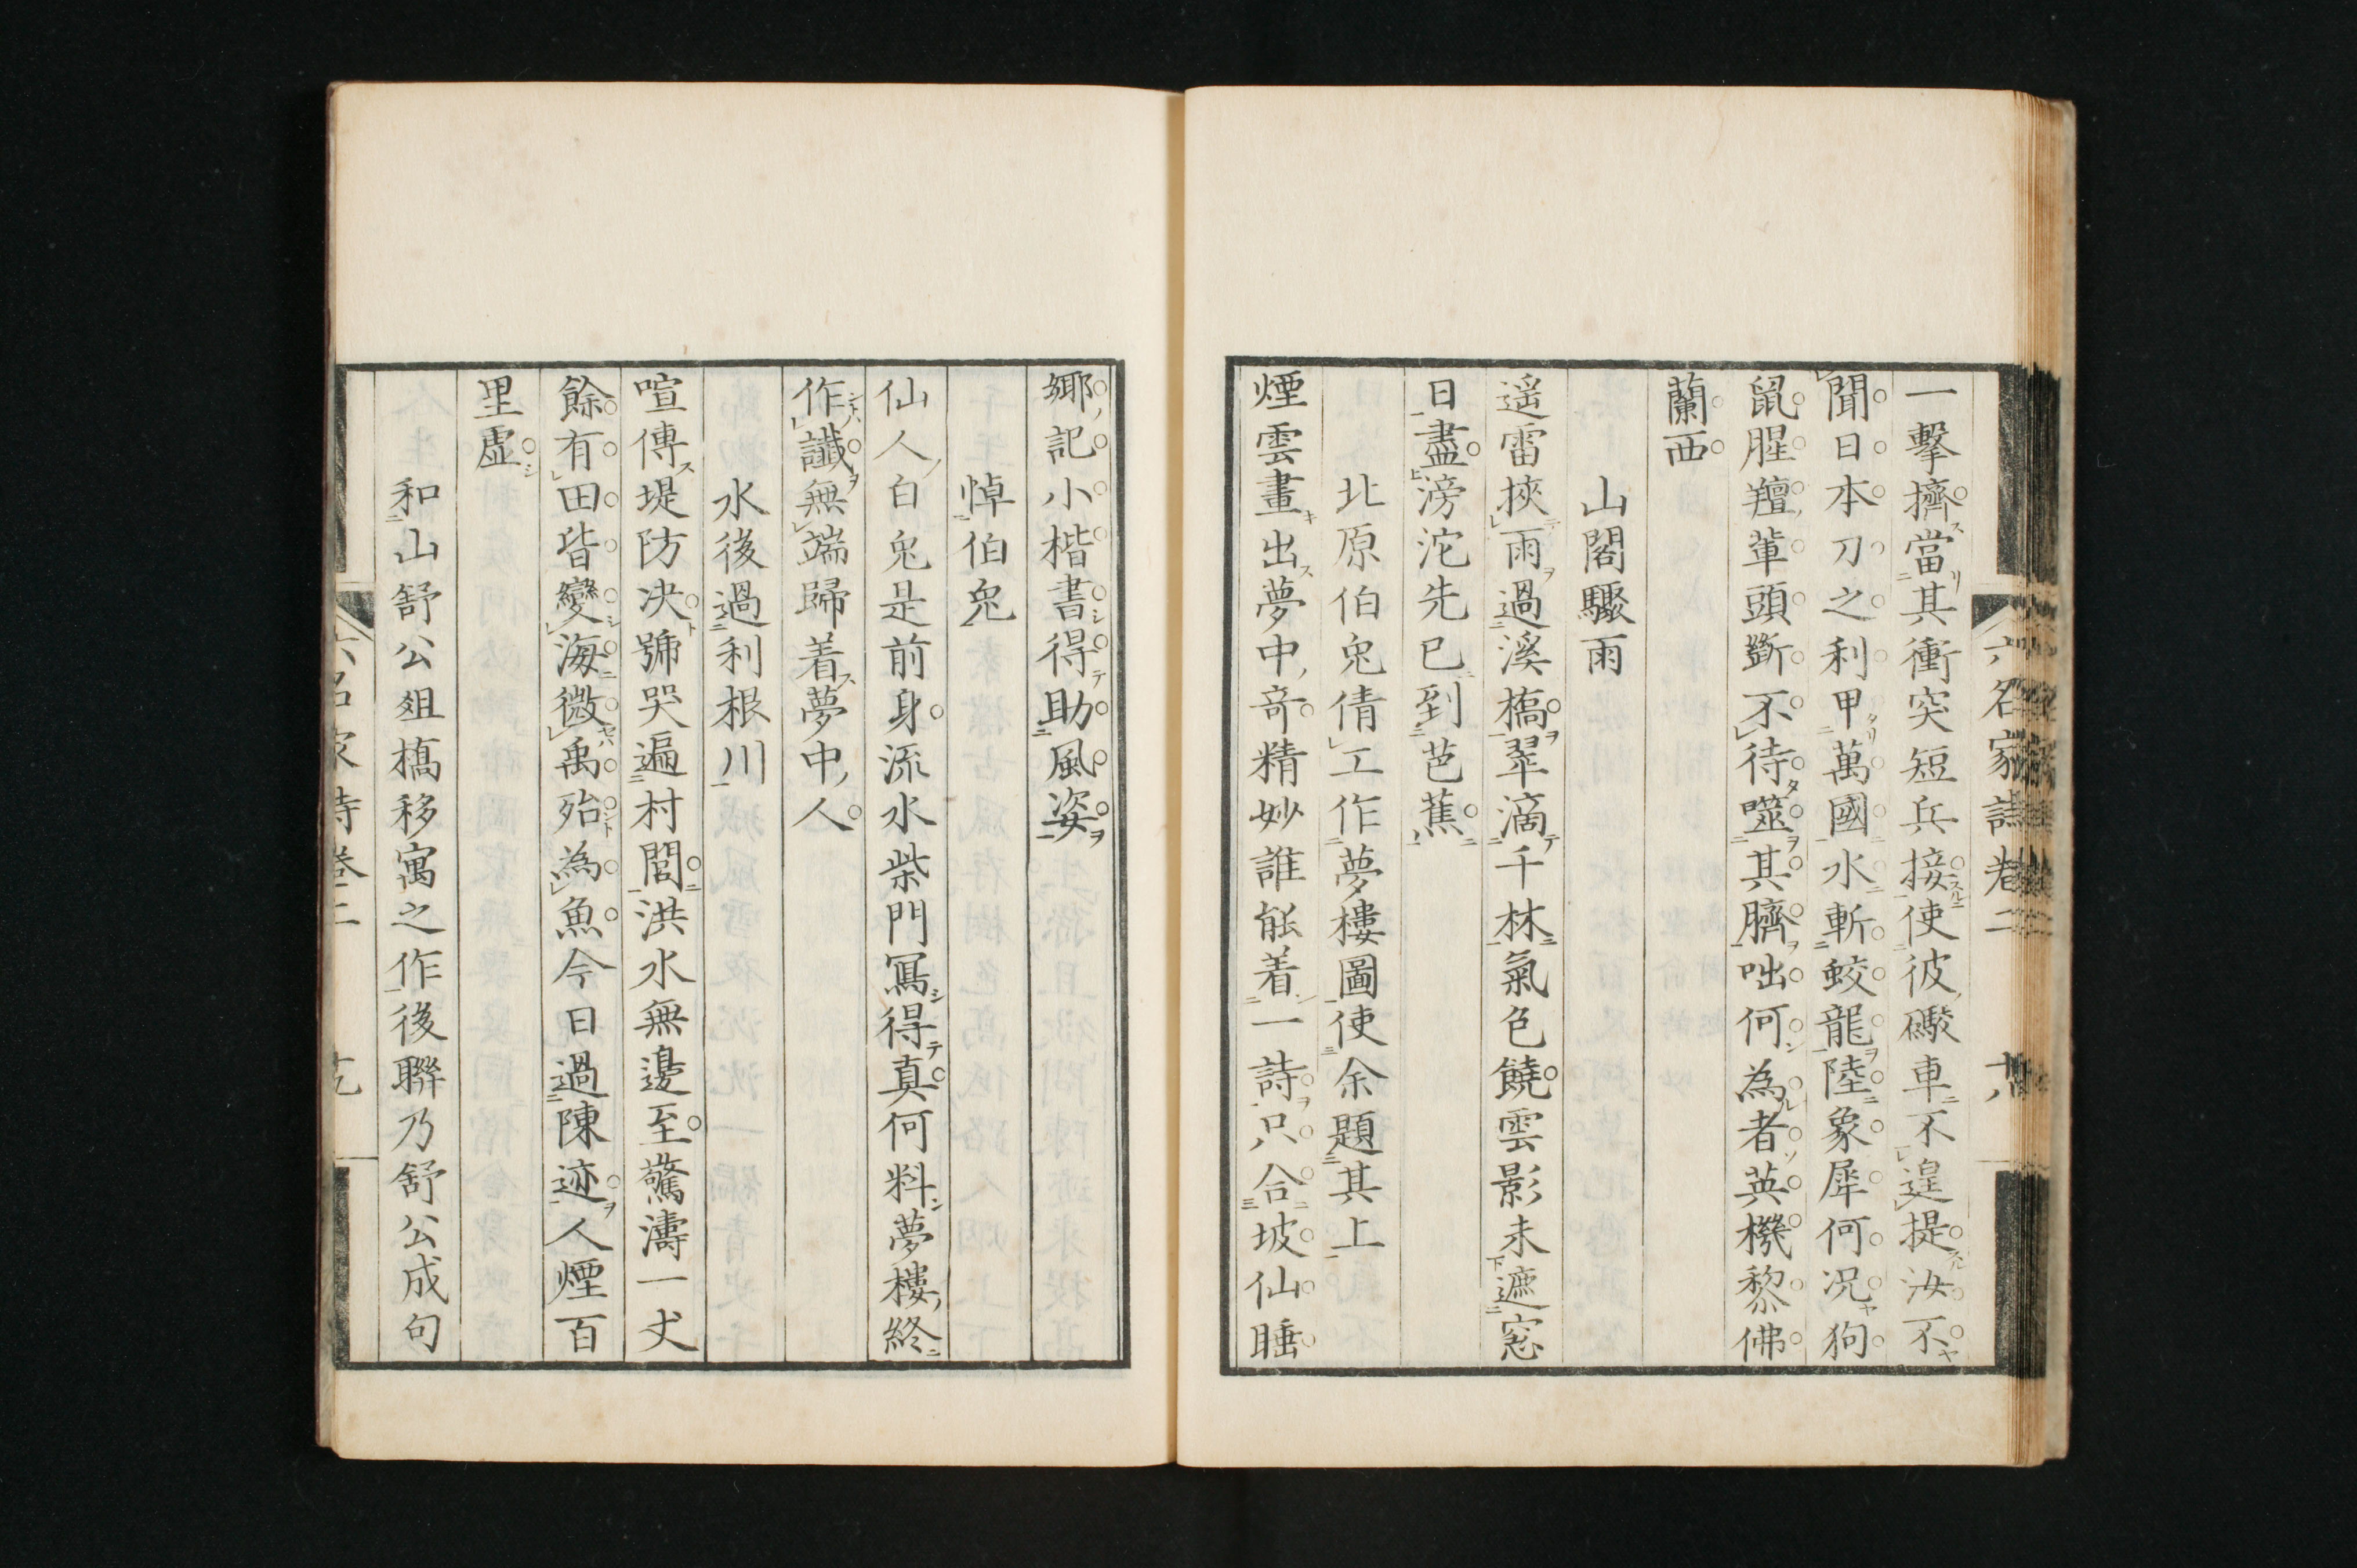 六名家詩卷二 十八
一擊擠當其衝突短兵接使彼礮車不遑提汝不
聞日本刀之利甲萬國水斬蛟龍陸象犀何況狗
鼠腥羶輩頭斷不待噬其臍咄何為者英機黎佛
蘭西
山閣驟雨
遥雷挾雨過溪橋翠滴千林氣色饒雲影未遮窓
日盡滂沱先已到芭蕉
北原伯兔倩工作夢樓圖使余題其上
煙雲畫出夢中奇精妙誰能着一詩只合坡仙睡
鄉記小楷書得助風姿
悼伯兔
仙人白兔是前身流水柴門寫得真何料夢樓終
作讖無端歸着夢中人
水後過利根川
喧傳堤防決號哭遍村閭洪水無邊至驚濤一丈
餘有田皆變海微禹殆為魚今日過陳迹人煙百
里虛
和山舒公俎橋移寓之作後聯乃舒公成句
六名家詩卷二